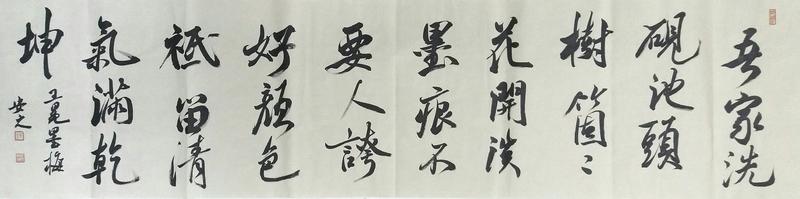 吾家洗
硯池頭
樹箇〻
花開淡
墨痕不
要人誇
好顔色
祗留清
氣滿乾
坤
王冕墨梅